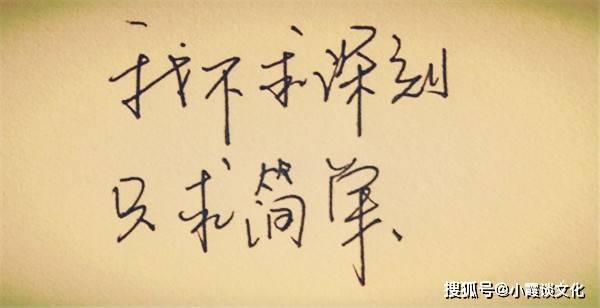 我不求深刻
只求简单、
搜狐号@小霞谈文化